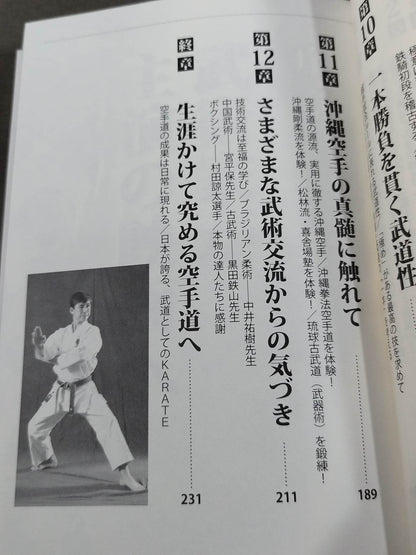 第10章
一本勝負を貫く武道性
第11章
沖縄空手の真髄に触れて
空手道の源流、実用に徹する沖縄空手／沖縄拳法空手道を体験！
沖縄剛柔流を体験！／松林流・喜舎場塾を体験！／琉球古武道（武器術）を鍛練！
189
第12章
さまざまな武術交流からの気づき
技術交流は至福の学び／ブラジリアン柔術――中井祐樹先生
中国武術――宮平保先生／古武術――黒田鉄山先生
ボクシング――村田諒太選手／本物の達人たちに感謝
211
終章
生涯かけて究める空手道へ
空手道の成果は日常に現れる／日本が誇る、武道としてのKARATE
231